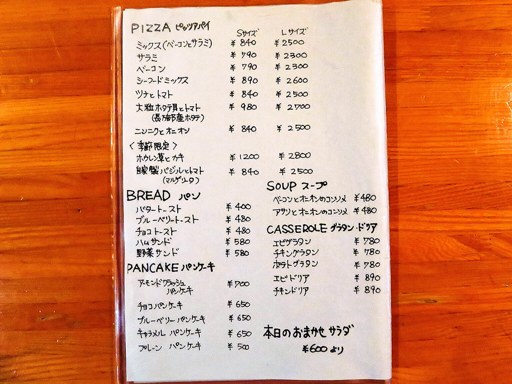 PIZZA ピッツアパイ
Sサイズ Lサイズ
ミックス(ベーコンとサラミ) ¥840 ¥2500
サラミ ¥790 ¥2300
ベーコン ¥790 ¥2300
シーフードミックス ¥890 ¥2600
ツナとトマト ¥840 ¥2500
大粒ホタテ貝とトマト ¥980 ¥2700
(長万部産ホタテ)
ニンニクとオニオン ¥840 ¥2500
〈季節限定〉
ホウレン草とカキ ¥1200 ¥2800
自家製バジルとトマト ¥840 ¥2500
(マルゲリータ)
BREAD パン
バタートースト ¥400
ブルーベリートースト ¥480
チョコトースト ¥480
ハムサンド ¥580
野菜サンド ¥580
PANCAKE パンケーキ
アーモンドクラッシュ
パンケーキ ¥700
チョコパンケーキ ¥650
ブルーベリーパンケーキ ¥650
キャラメルパンケーキ ¥650
プレーンパンケーキ ¥500
SOUP スープ
ベーコンとオニオンのコンソメ ¥480
アサリとオニオンのコンソメ ¥480
CASSEROLE グラタン・ドリア
エビグラタン ¥780
チキングラタン ¥780
ポテトグラタン ¥780
エビドリア ¥890
チキンドリア ¥890
本日のおまかせサラダ
¥600より